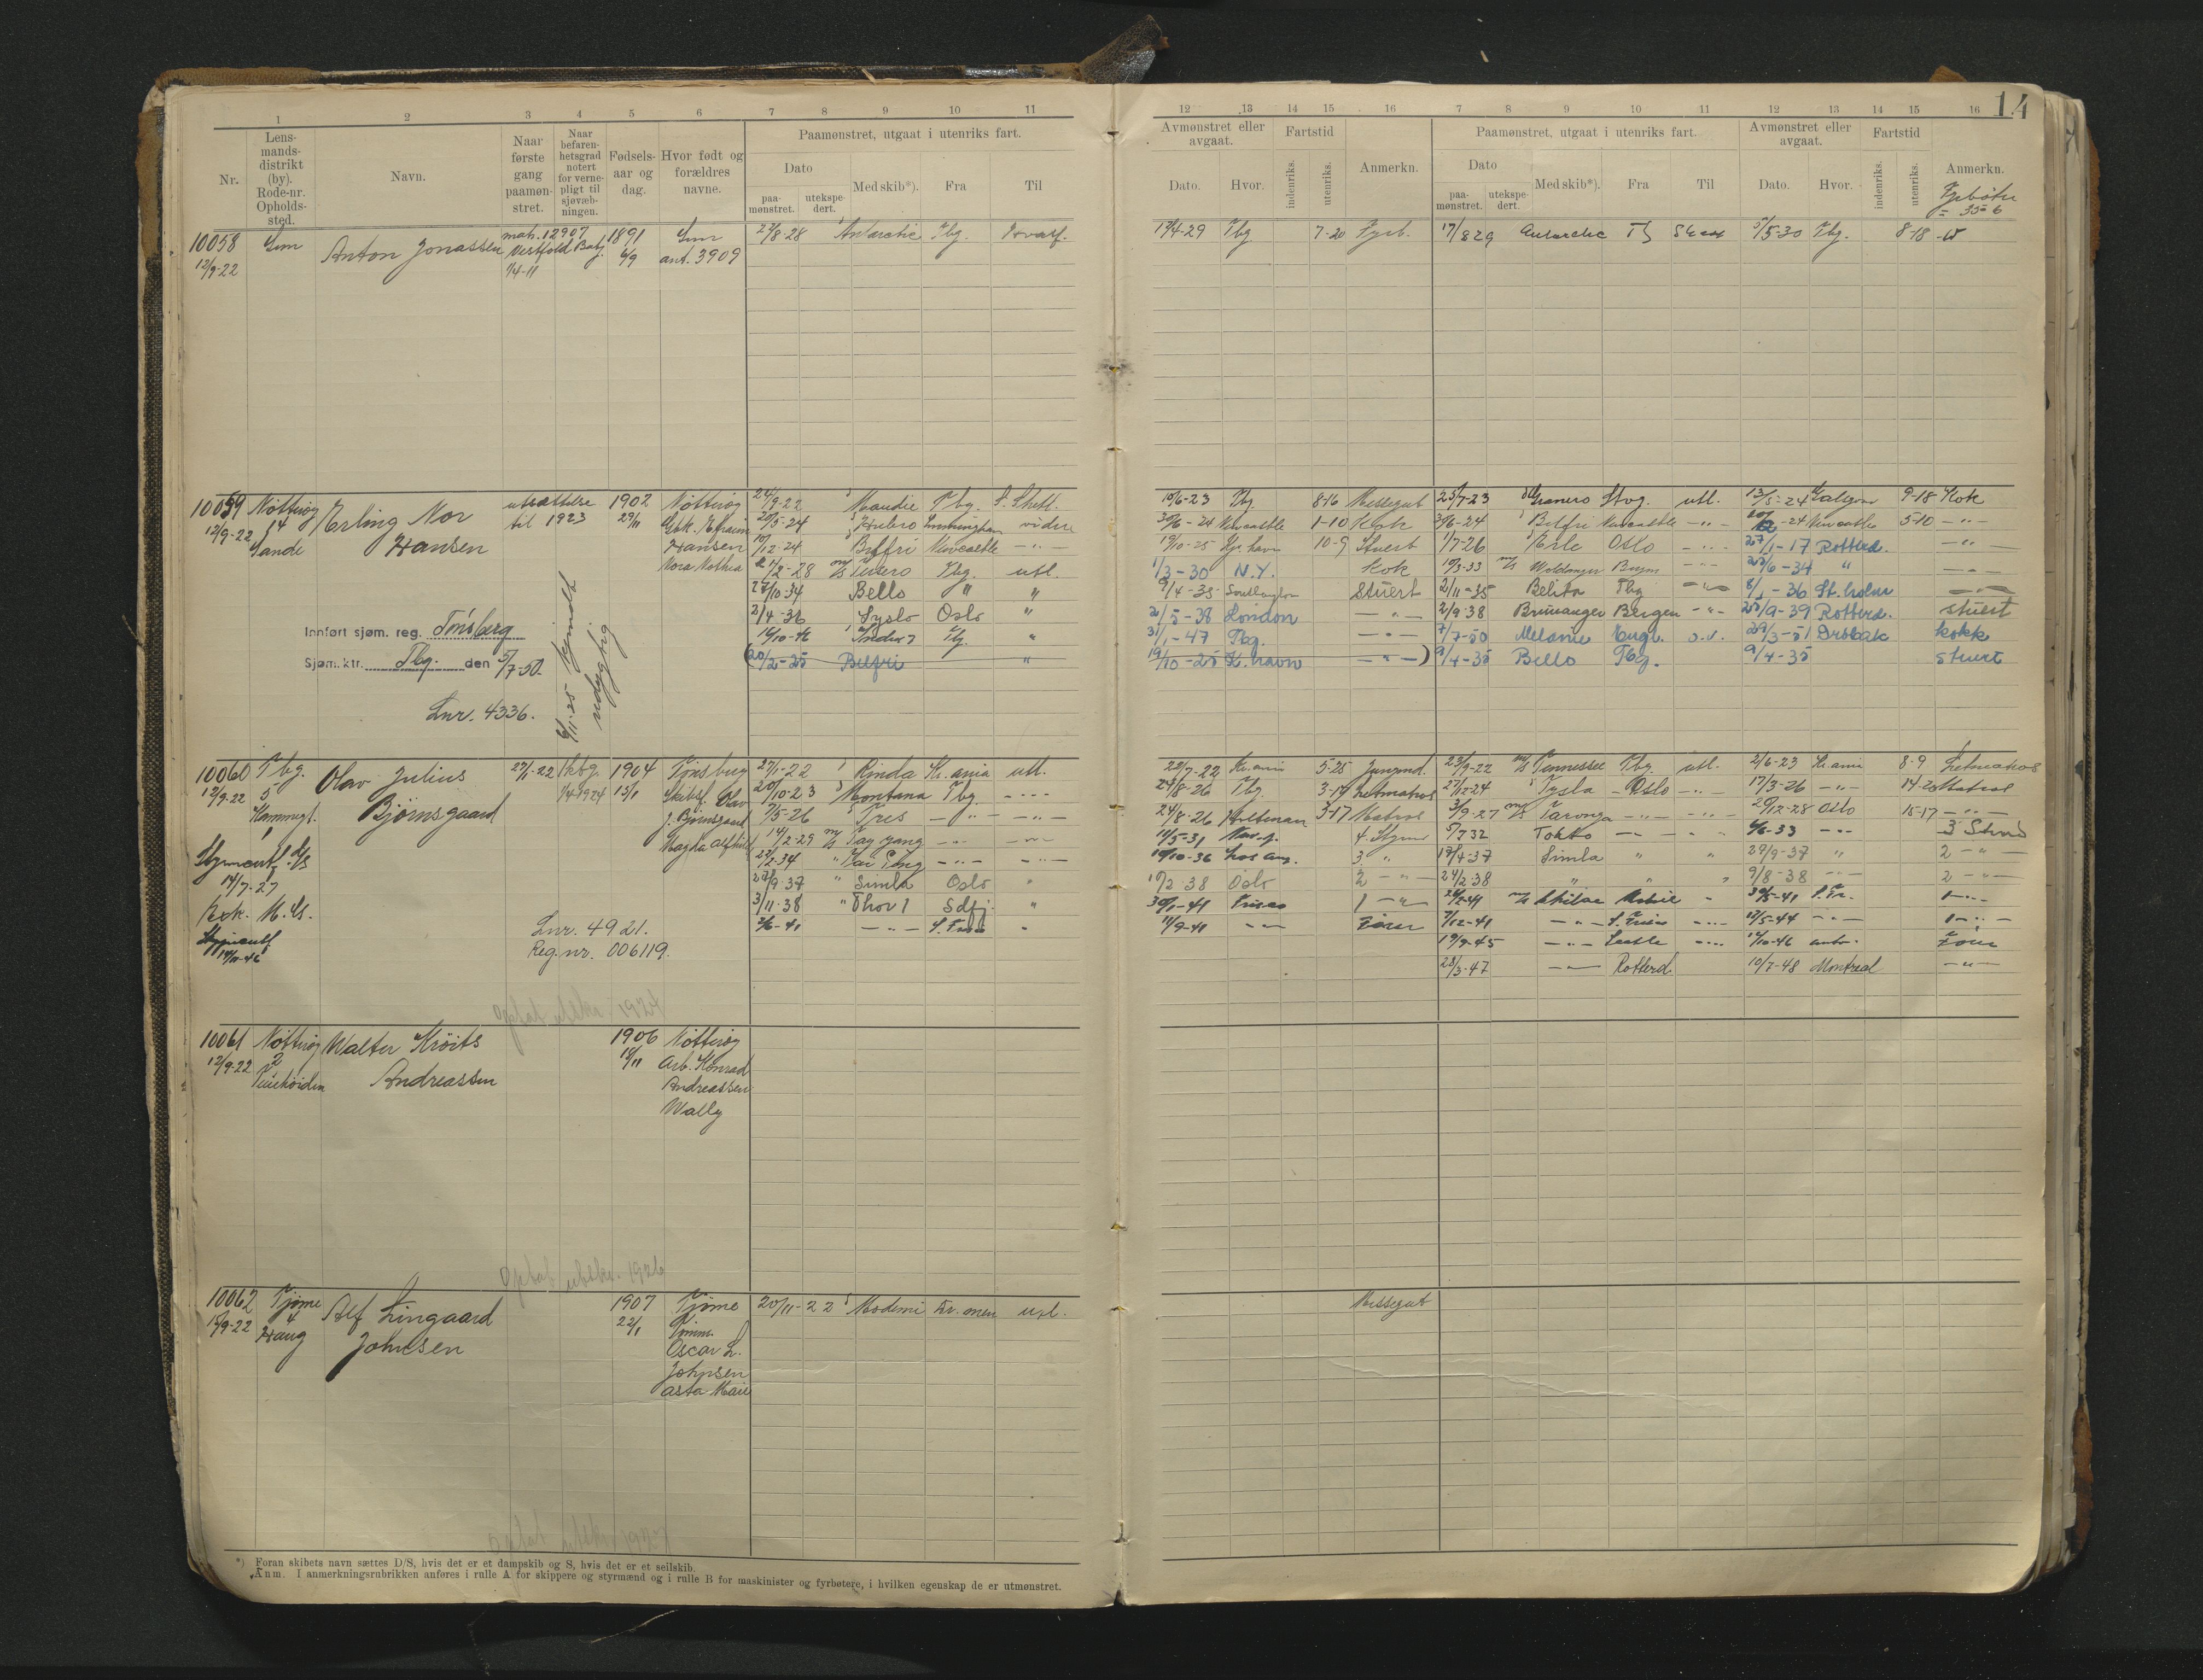 14
1 2 3 4 5 6 7 8 9 10 11
Nr.
Lens-
mands-
distrikt
(by).
Rode-nr.
Opholds-
sted.
Navn.
Naar
første
gang
paamøn-
stret.
Naar
befaren-
hetsgrad
notert
for verne-
pligt til
sjøvæb-
ningen.
Fødsels-
aar og
dag.
Hvor født og
forældres
navne.
Paamønstret, utgaat i utenriks fart.
Dato
paa-
mønstret.
utekspe-
dert.
Med skib*).
Fra
Til
10058 Sem Anton Jonassen mah. 12907 1891 Sem 27/8-28 Antarctic Tbg. Hvalf.
12/9-22 Vestfold Batj. 6/9 ant. 3909
1/4-11
10059 Nøtterøy Erling Nor utsættelse 1902 Nøtterøy 24/9-22 Maudie Tbg. S. Shetl.
12/9-22 4 til 1923 29/11 20/5-24 videre
Hansen Hansen 10/12-24 Belfri Newcastle -"-
Nora Mathea 21/2-28 m/s Tbg. utl.
27/10-34 Bello " "
2/4-36 Lyslo Oslo "
Innført sjøm. reg. Tønsberg 16/10-46 Tbg. "
Sjøm.ktr. Tbg. den 5/7-50. 20/2-25 Belfri "
6/11-25 hjemsolt
udygtig
Lnr. 4336.
10060 Tbg. Olav Julius 27/1-22 1kbg. 1904 Tønsberg 27/1-22 Rinda Kr.ania utl.
12/9-22 5 Bjørnsgaard 1/4-1924 15/1 Skibsf. Olav 20/10-23 Montana Tbg. -"-
J. Bjørnsgaard 7/5-26 Tres -"- -"-
Magda Alfhild 14/2-29 m/s Tay yang -"- -"-
22/2-34 " Tai Ping -"- -"-
14/7-27 27/9-37 " Simla Oslo "
3/11-38 " Thor I Sdfj. "
Lnr. 4921. 2/6-41 -"- S. Fran "
Reg.nr. 006119.
19/11-46
Optat utskr. 1924
10061 Nøtterøy Walter Krøits 1906 Nøtterøy
12/9-22 2 Andreassen 18/11 Arb. Konrad
Andreassen
Wally
Optat utskr. 1926
10062 Tjøme Alf Lingaard 1907 Tjøme 20/11-22 Modemi Dr.men utl.
15/9-22 4 Johnsen 22/1 Tømm.
Haug Oscar L.
Johnsen
Asta Marie
Optat utskr. 1927
*) Foran skibets navn sættes D/S, hvis det er et dampskib og S, hvis det er et seilskib.
Anm. I anmerkningsrubrikken anføres i rulle A for skippere og styrmænd og i rulle B for maskinister og fyrbøtere, i hvilken egenskap de er utmønstret.
12 13 14 15 16 7 8 9 10 11 12 13 14 15 16
Avmønstret eller
avgaat.
Dato. Hvor.
Fartstid
indenriks.
utenriks.
Anmerkn.
Paamønstret, utgaat i utenriks fart.
Dato
paa-
mønstret.
utekspe-
dert.
Med skib*). Fra Til
Avmønstret eller
avgaat.
Dato. Hvor.
Fartstid
indenriks.
utenriks.
Anmerkn.
Fyrbøter
= 35-6
17/4-29 Tbg 7-20 Fyrb. 17/8 29 Antarctic 5/5-30 Tbg. 8-18
10/6-23 Tbg. 8-16 Messegut 25/7-23 Granero utl. 13/5-24 9-18 Kok
30/6-24 Newcastle 1-10 Kok 30/6-24 Belfri Newcastle -"- -24 Newcastle 5-10 -"-
19/10-25 Kj.havn 10-9 Stuert 1/7-26 Erle Oslo -"- 27/1-17 Rotterd. -"-
1/3-30 N.Y. Kok 10/3-33 m/s -"- 22/6-34 " -"-
9/4-35 Southampton Stuert 2/11-35 Belita Tbg -"- 8/1-36 St.holm -"-
2/5-38 London -"- 2/9-38 Brimanger Bergen -"- 25/9-39 Rotterd. stuert
31/1-47 Tbg. -"- 7/7-50 Melanie Engl. o.v. 29/3-51 Drøbak kokk
19/10-25 K.havn -"- 9/4-35 Bello Tbg. 9/4-35 stuert
22/7-22 Kr.ania 5-25 Jungmd. 23/9-22 m/s Tennessee Tbg. utl. 2/6-23 Kr.ania 8-9 Letmatros
24/8-26 Tbg. 3-17 Letmatros 27/12-24 Tysla Oslo -"- 17/3-26 -"- 14-20 Matros
24/8-26 3-17 Matros 3/9-27 m/s Taronga -"- -"- 20/12-28 Oslo 15-17 -"-
14/5-31 4. Styrm 5/7 32 Tokto -"- " 6/6-33 -"- 3 Strm
10/10-36 Los Ang. 3 " 17/4-37 Simla " " 29/9-37 " 2 -"-
1/2-38 Oslo 2 -"- 24/2-38 " " " 9/8-38 -"- 2 -"-
30/1-41 Frisco 1 -"- m/s Mobile " 30/5-41 S. Fr. 1 -"-
11/9-41 -"- Fører 7/12-41 -"- -"- 13/5-44 -"- 1 -"-
19/9-45 -"- Seattle -"- 14/10-46 Fører
28/3-47 -"- Rotterd. 10/7-48 Montreal -"-
Messegut